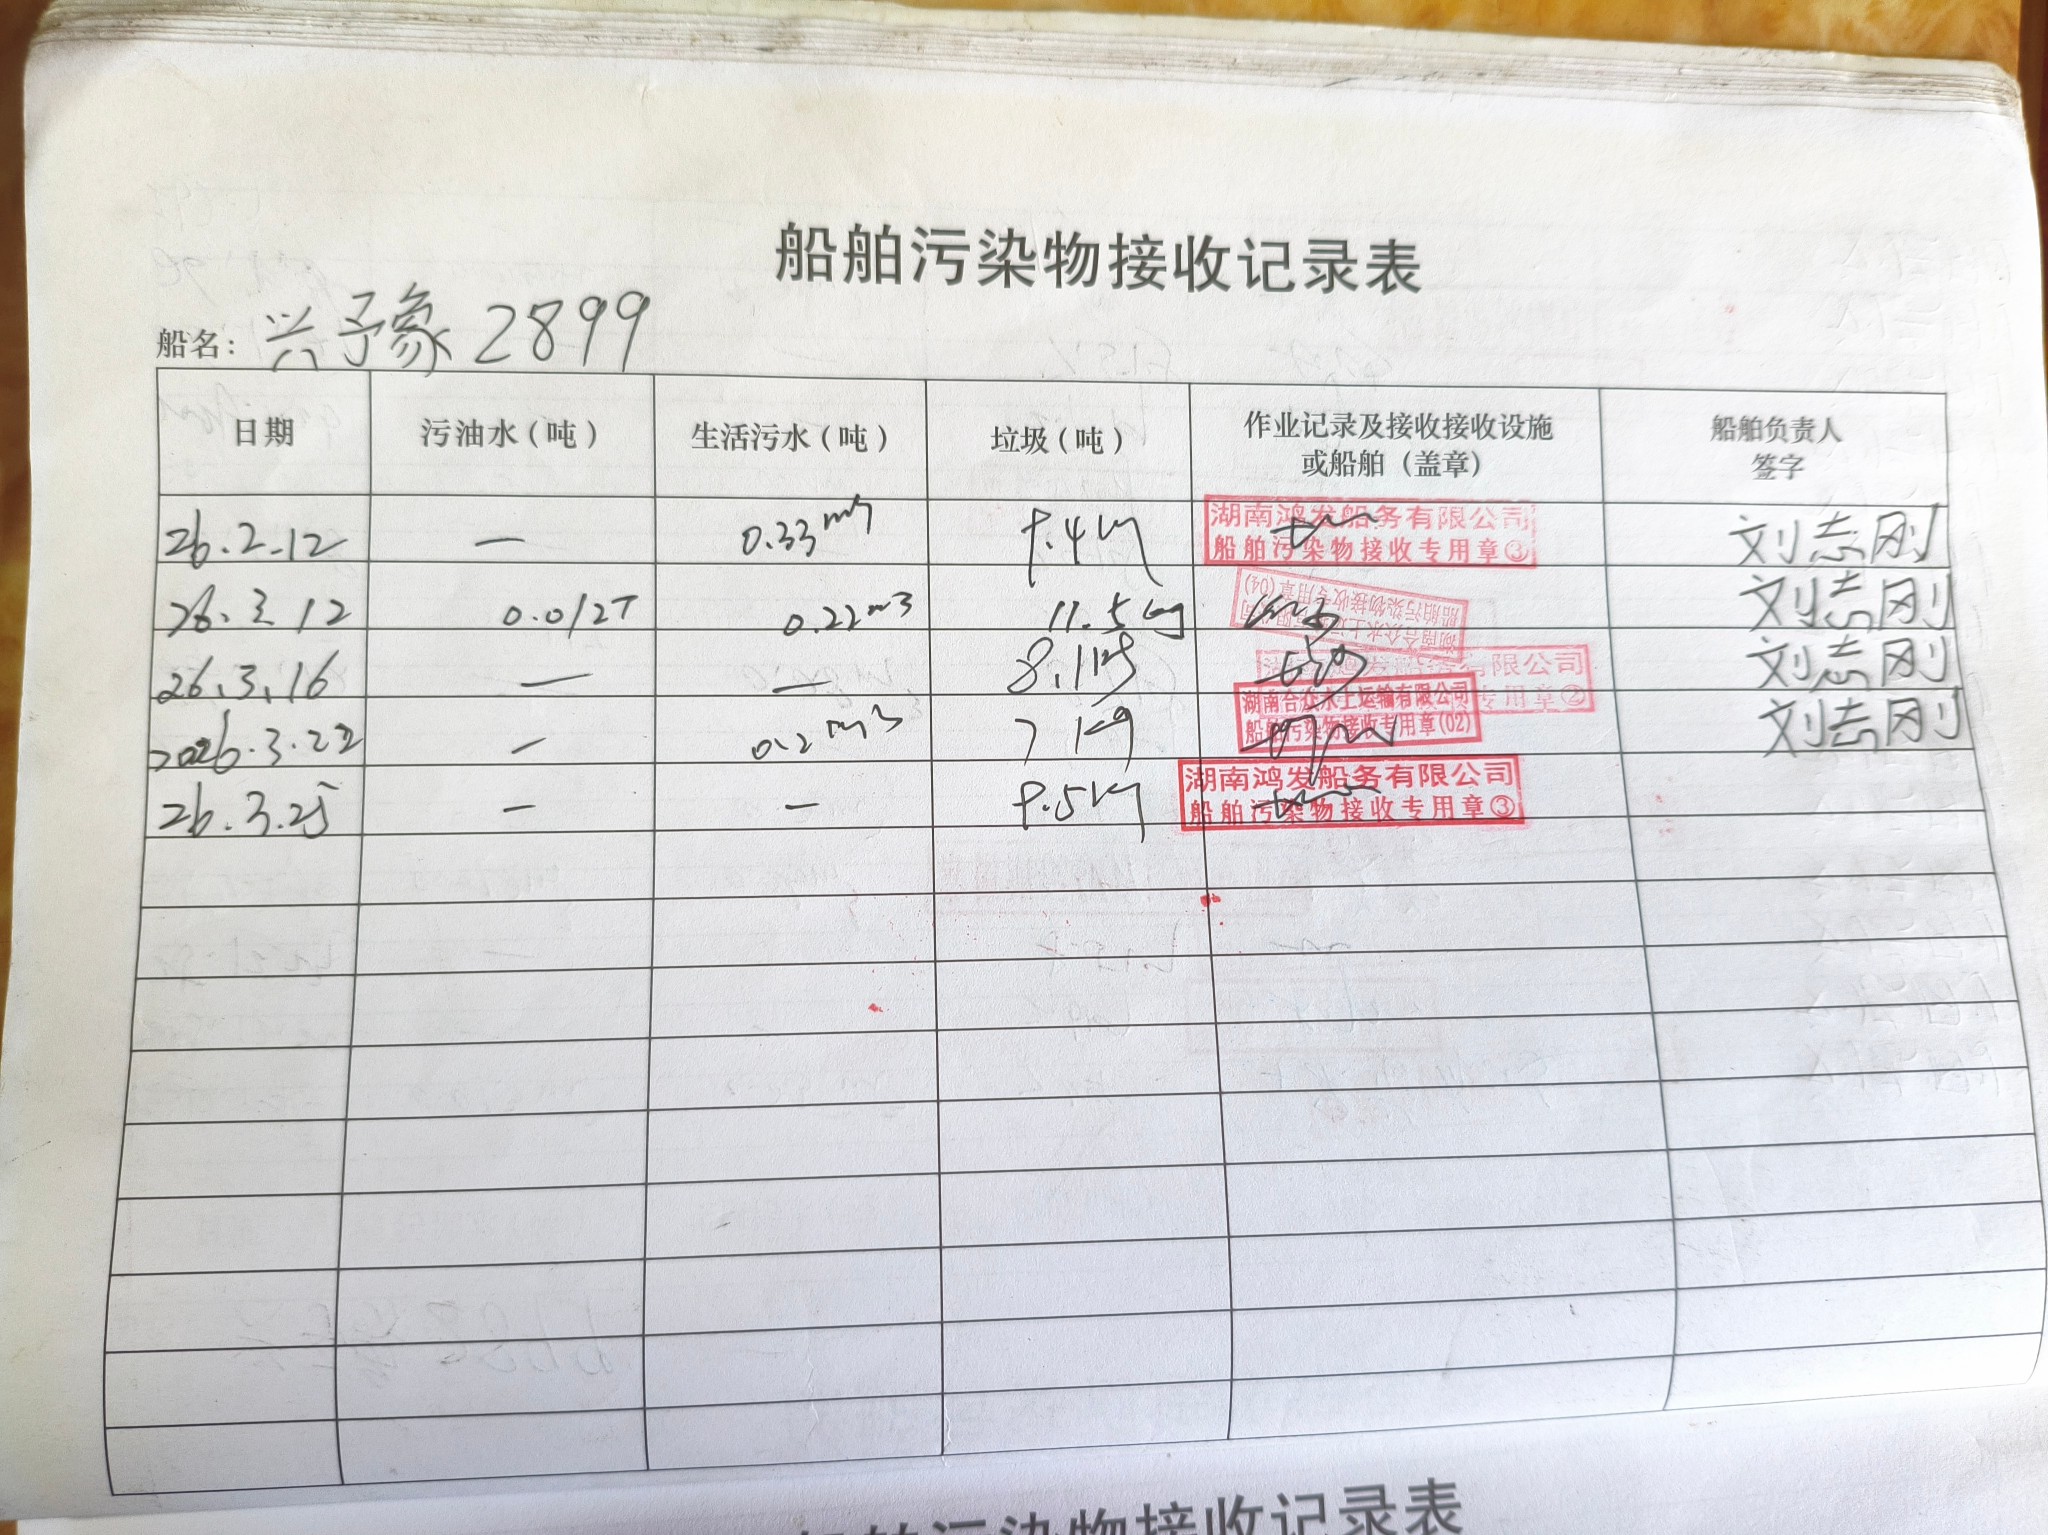 船舶污染物接收记录表
船名：兴予象2899
日期 污油水（吨） 生活污水（吨） 垃圾（吨） 作业记录及接收接收设施或船舶（盖章） 船舶负责人签字
26.2.12 — 0.33m³ 9.4kg 湖南鸿发船务有限公司 船舶污染物接收专用章③ 刘志刚
26.3.12 0.012T 0.22m3 11.5kg 湖南合众水上运输有限公司 船舶污染物接收专用章(04) 刘志刚
26.3.16 — — 8.1kg 有限公司 专用章② 刘志刚
2026.3.22 — 0.2m3 7kg 湖南合众水上运输有限公司 船舶污染物接收专用章(02) 刘志刚
26.3.25 — — 9.5kg 湖南鸿发船务有限公司 船舶污染物接收专用章③
船舶污染物接收记录表